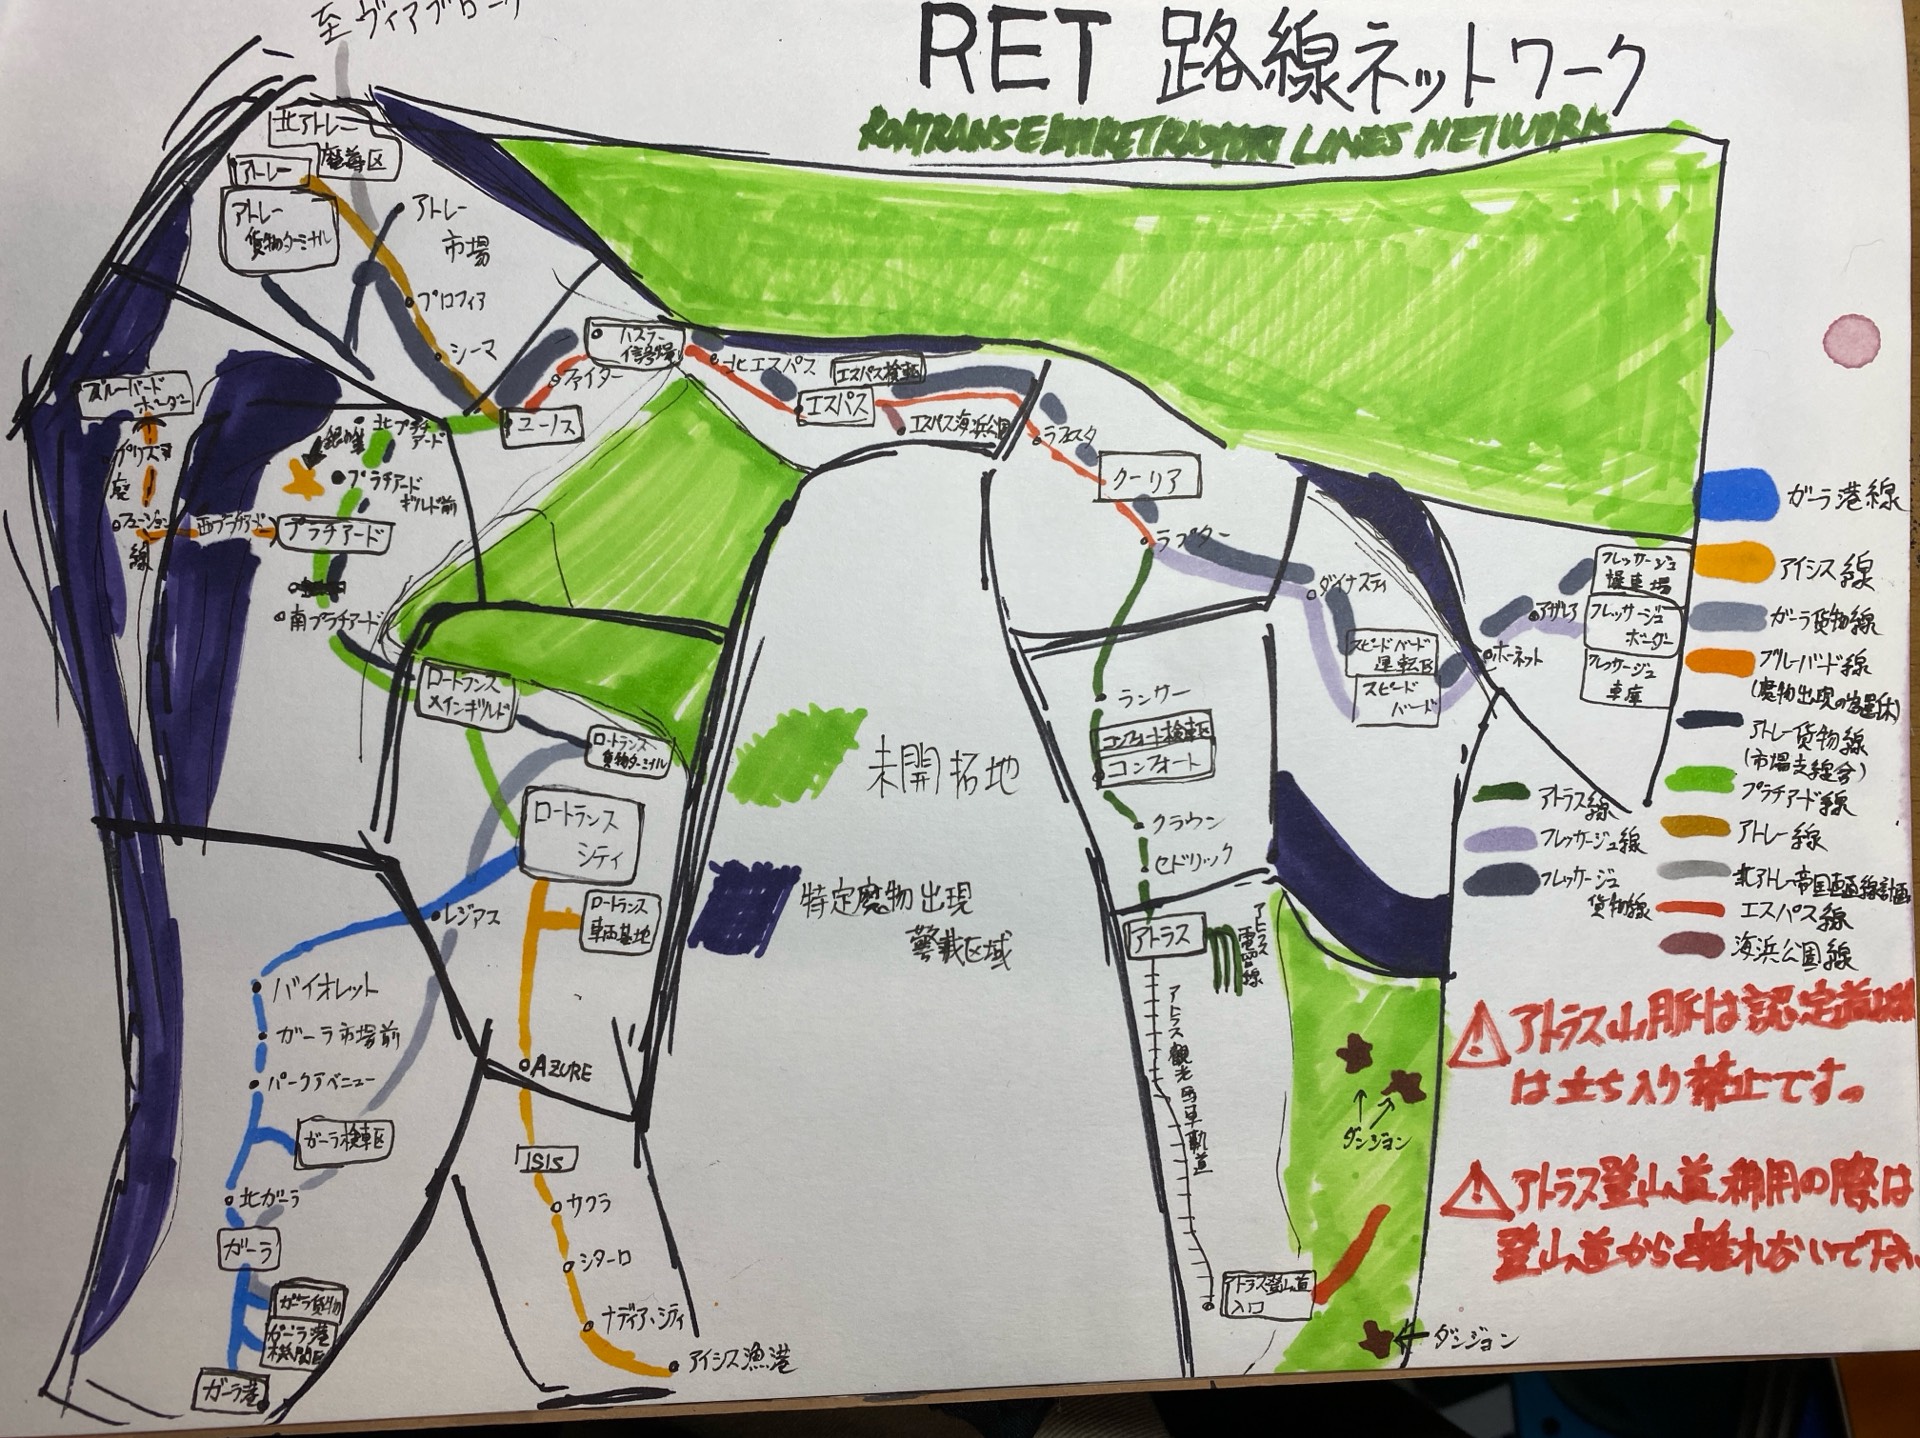 至ヴィアブローク
RET 路線ネットワーク
LINES NETWORK
北アトレー
アトレー
アトレー
貨物ターミナル
アトレー
市場
プロフィア
シーマ
ファイター
ハスラー
信号場
ユーノス
北エスパス
エスパス検車区
エスパス
エスパス海浜公園
ラフェスタ
クーリア
ラプター
ダイナスティ
スピードバード
運転区
スピード
バード
ホーネット
アザレア
フレッサージュ
操車場
フレッサージュ
ボーダー
フレッサージュ
車庫
ブルーバード
ボーダー
プリズマ
フュージョン
西プラチアード
北プラチ
アード
プラチアード
ギルド前
プラチアード
南プラチアード
ロートランス
メインギルド
ロートランス
貨物ターミナル
ロートランス
シティ
ロートランス
車両基地
レジアス
バイオレット
ガーラ市場前
パークアベニュー
ガーラ検車区
北ガーラ
ガーラ
ガーラ貨物
ガーラ港
機関区
ガーラ港
AZURE
ISIS
サクラ
シターロ
ナディア・シティ
アイシス漁港
未開拓地
特定魔物出現
警戒区域
ランサー
コンフォート検車区
コンフォート
クラウン
セドリック
アトラス
アトラス
電留線
アトラス観光馬車軌道
アトラス登山道
入口
ダンジョン
ダンジョン
ガーラ港線
アイシス線
ガーラ貨物線
ブルーバード線
(魔物出現の為運休)
アトレー貨物線
(市場支線含)
プラチアード線
アトレー線
北アトレー帝国直通線計画
エスパス線
海浜公園線
アトラス線
フレッサージュ線
フレッサージュ
貨物線
アトラス山脈は認定
は立ち入り禁止です。
アトラス登山道利用の際は
登山道から離れないで下さい